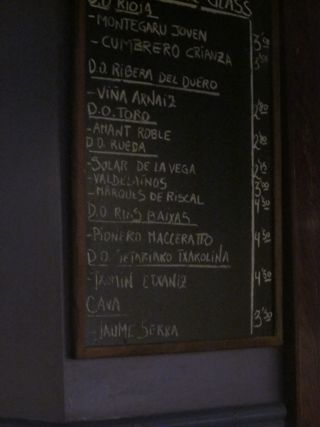 GLASS
D.O RIOJA
-MONTEGARU JOVEN
-CUMBRERO CRIANZA
D.O. RIBERA DEL DUERO
-VIÑA ARNAIZ
D.O. TORO
-AMANT ROBLE
D.O. RUEDA
-SOLAR DE LA VEGA
-VALDELAINOS
-MARQUES DE RISCAL 4,50
D.O. RIAS BAIXAS
-PIONERO MACCERATTO 4,50
D.O GETARIAKO TXAKOLINA
-TXOMIN ETXANIZ 4,50
CAVA
-JAUME SERRA 3,50